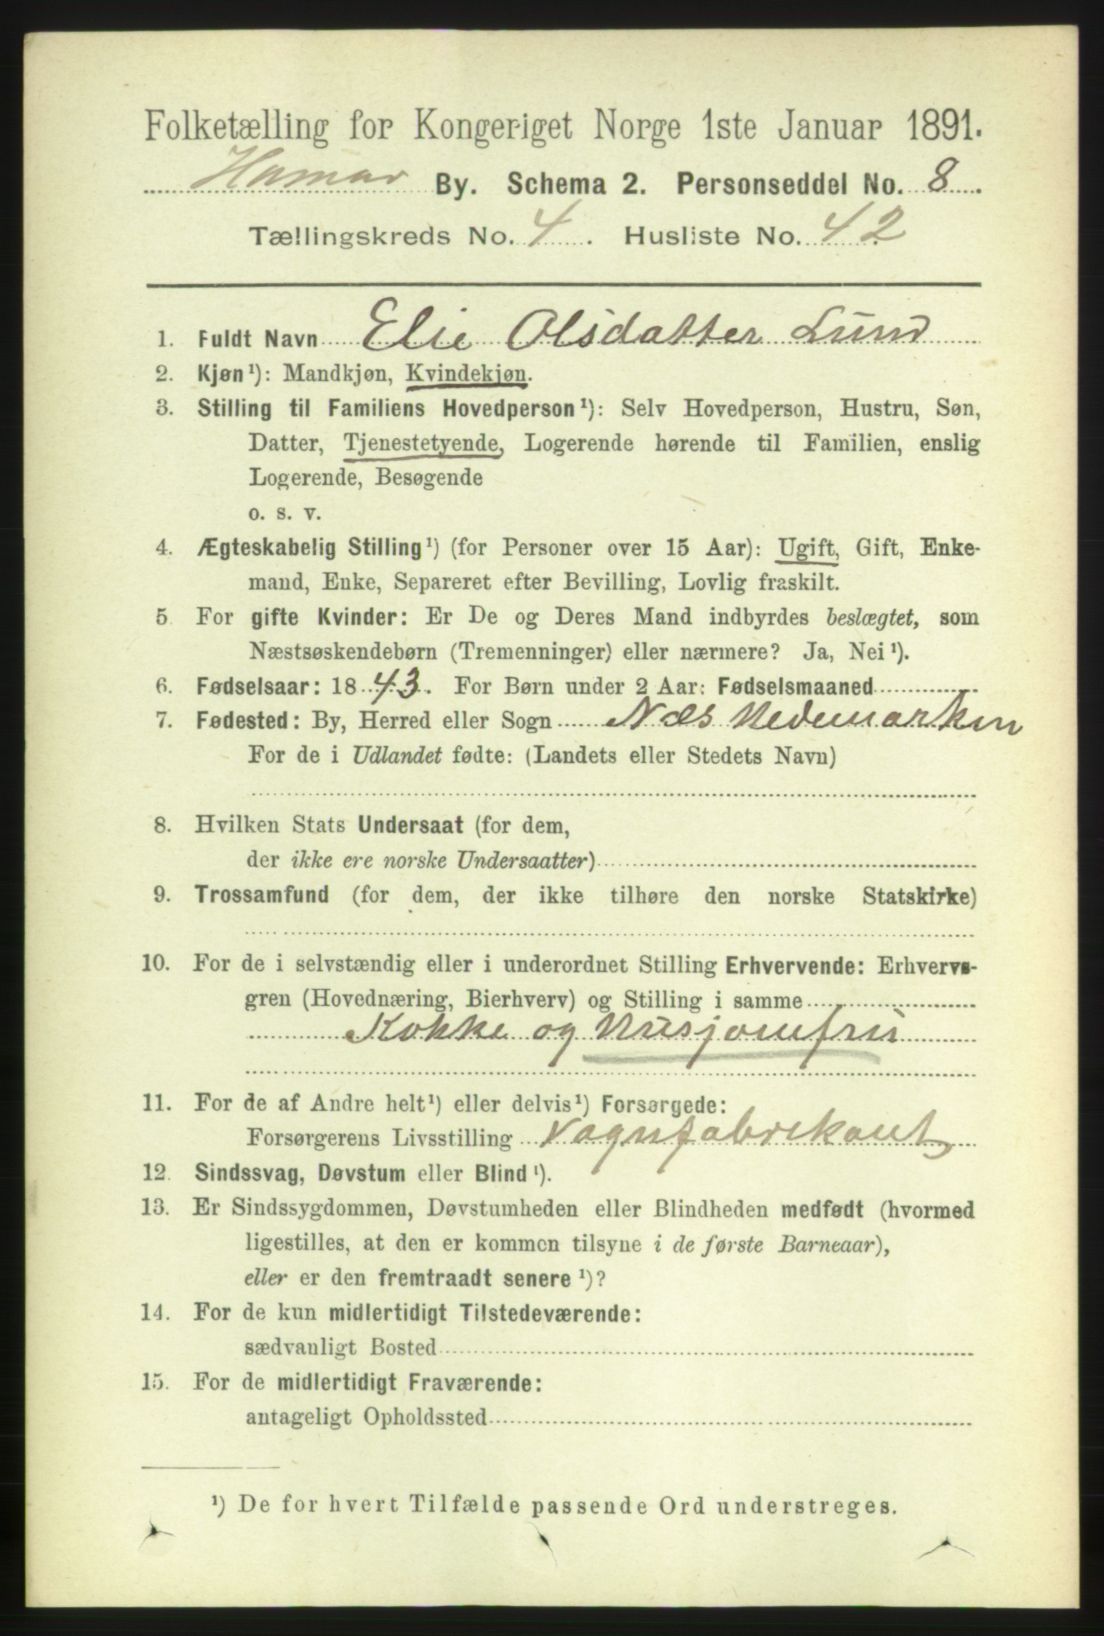 Folketælling for Kongeriget Norge 1ste Januar 1891.
Hamar By. Schema 2. Personseddel No. 8.
Tællingskreds No. 4. Husliste No. 42
1. Fuldt Navn Elie Olsdatter Lund
2. Kjøn¹): Mandkjøn, Kvindekjøn.
3. Stilling til Familiens Hovedperson¹): Selv Hovedperson, Hustru, Søn,
Datter, Tjenestetyende, Logerende hørende til Familien, enslig
Logerende, Besøgende
o. s. v.
4. Ægteskabelig Stilling¹) (for Personer over 15 Aar): Ugift, Gift, Enke-
mand, Enke, Separeret efter Bevilling, Lovlig fraskilt.
5 For gifte Kvinder: Er De og Deres Mand indbyrdes beslægtet, som
Næstsøskendebørn (Tremenninger) eller nærmere? Ja, Nei¹).
6. Fødselsaar: 1843. For Børn under 2 Aar: Fødselsmaaned
7. Fødested: By, Herred eller Sogn Næs Hedemarken
For de i Udlandet fødte: (Landets eller Stedets Navn)
8. Hvilken Stats Undersaat (for dem,
der ikke ere norske Undersaatter)
9. Trossamfund (for dem, der ikke tilhøre den norske Statskirke)
10. For de i selvstændig eller i underordnet Stilling Erhvervende: Erhvervs-
gren (Hovednæring, Bierhverv) og Stilling i samme
Kokke og Husjomfru
11. For de af Andre helt¹) eller delvis¹) Forsørgede:
Forsørgerens Livsstilling Vognfabrikant
12. Sindssvag, Døvstum eller Blind¹).
13. Er Sindssygdommen, Døvstumheden eller Blindheden medfødt (hvormed
ligestilles, at den er kommen tilsyne i de første Barneaar),
eller er den fremtraadt senere¹)?
14. For de kun midlertidigt Tilstedeværende:
sædvanligt Bosted
15. For de midlertidigt Fraværende:
antageligt Opholdssted
¹) De for hvert Tilfælde passende Ord understreges.